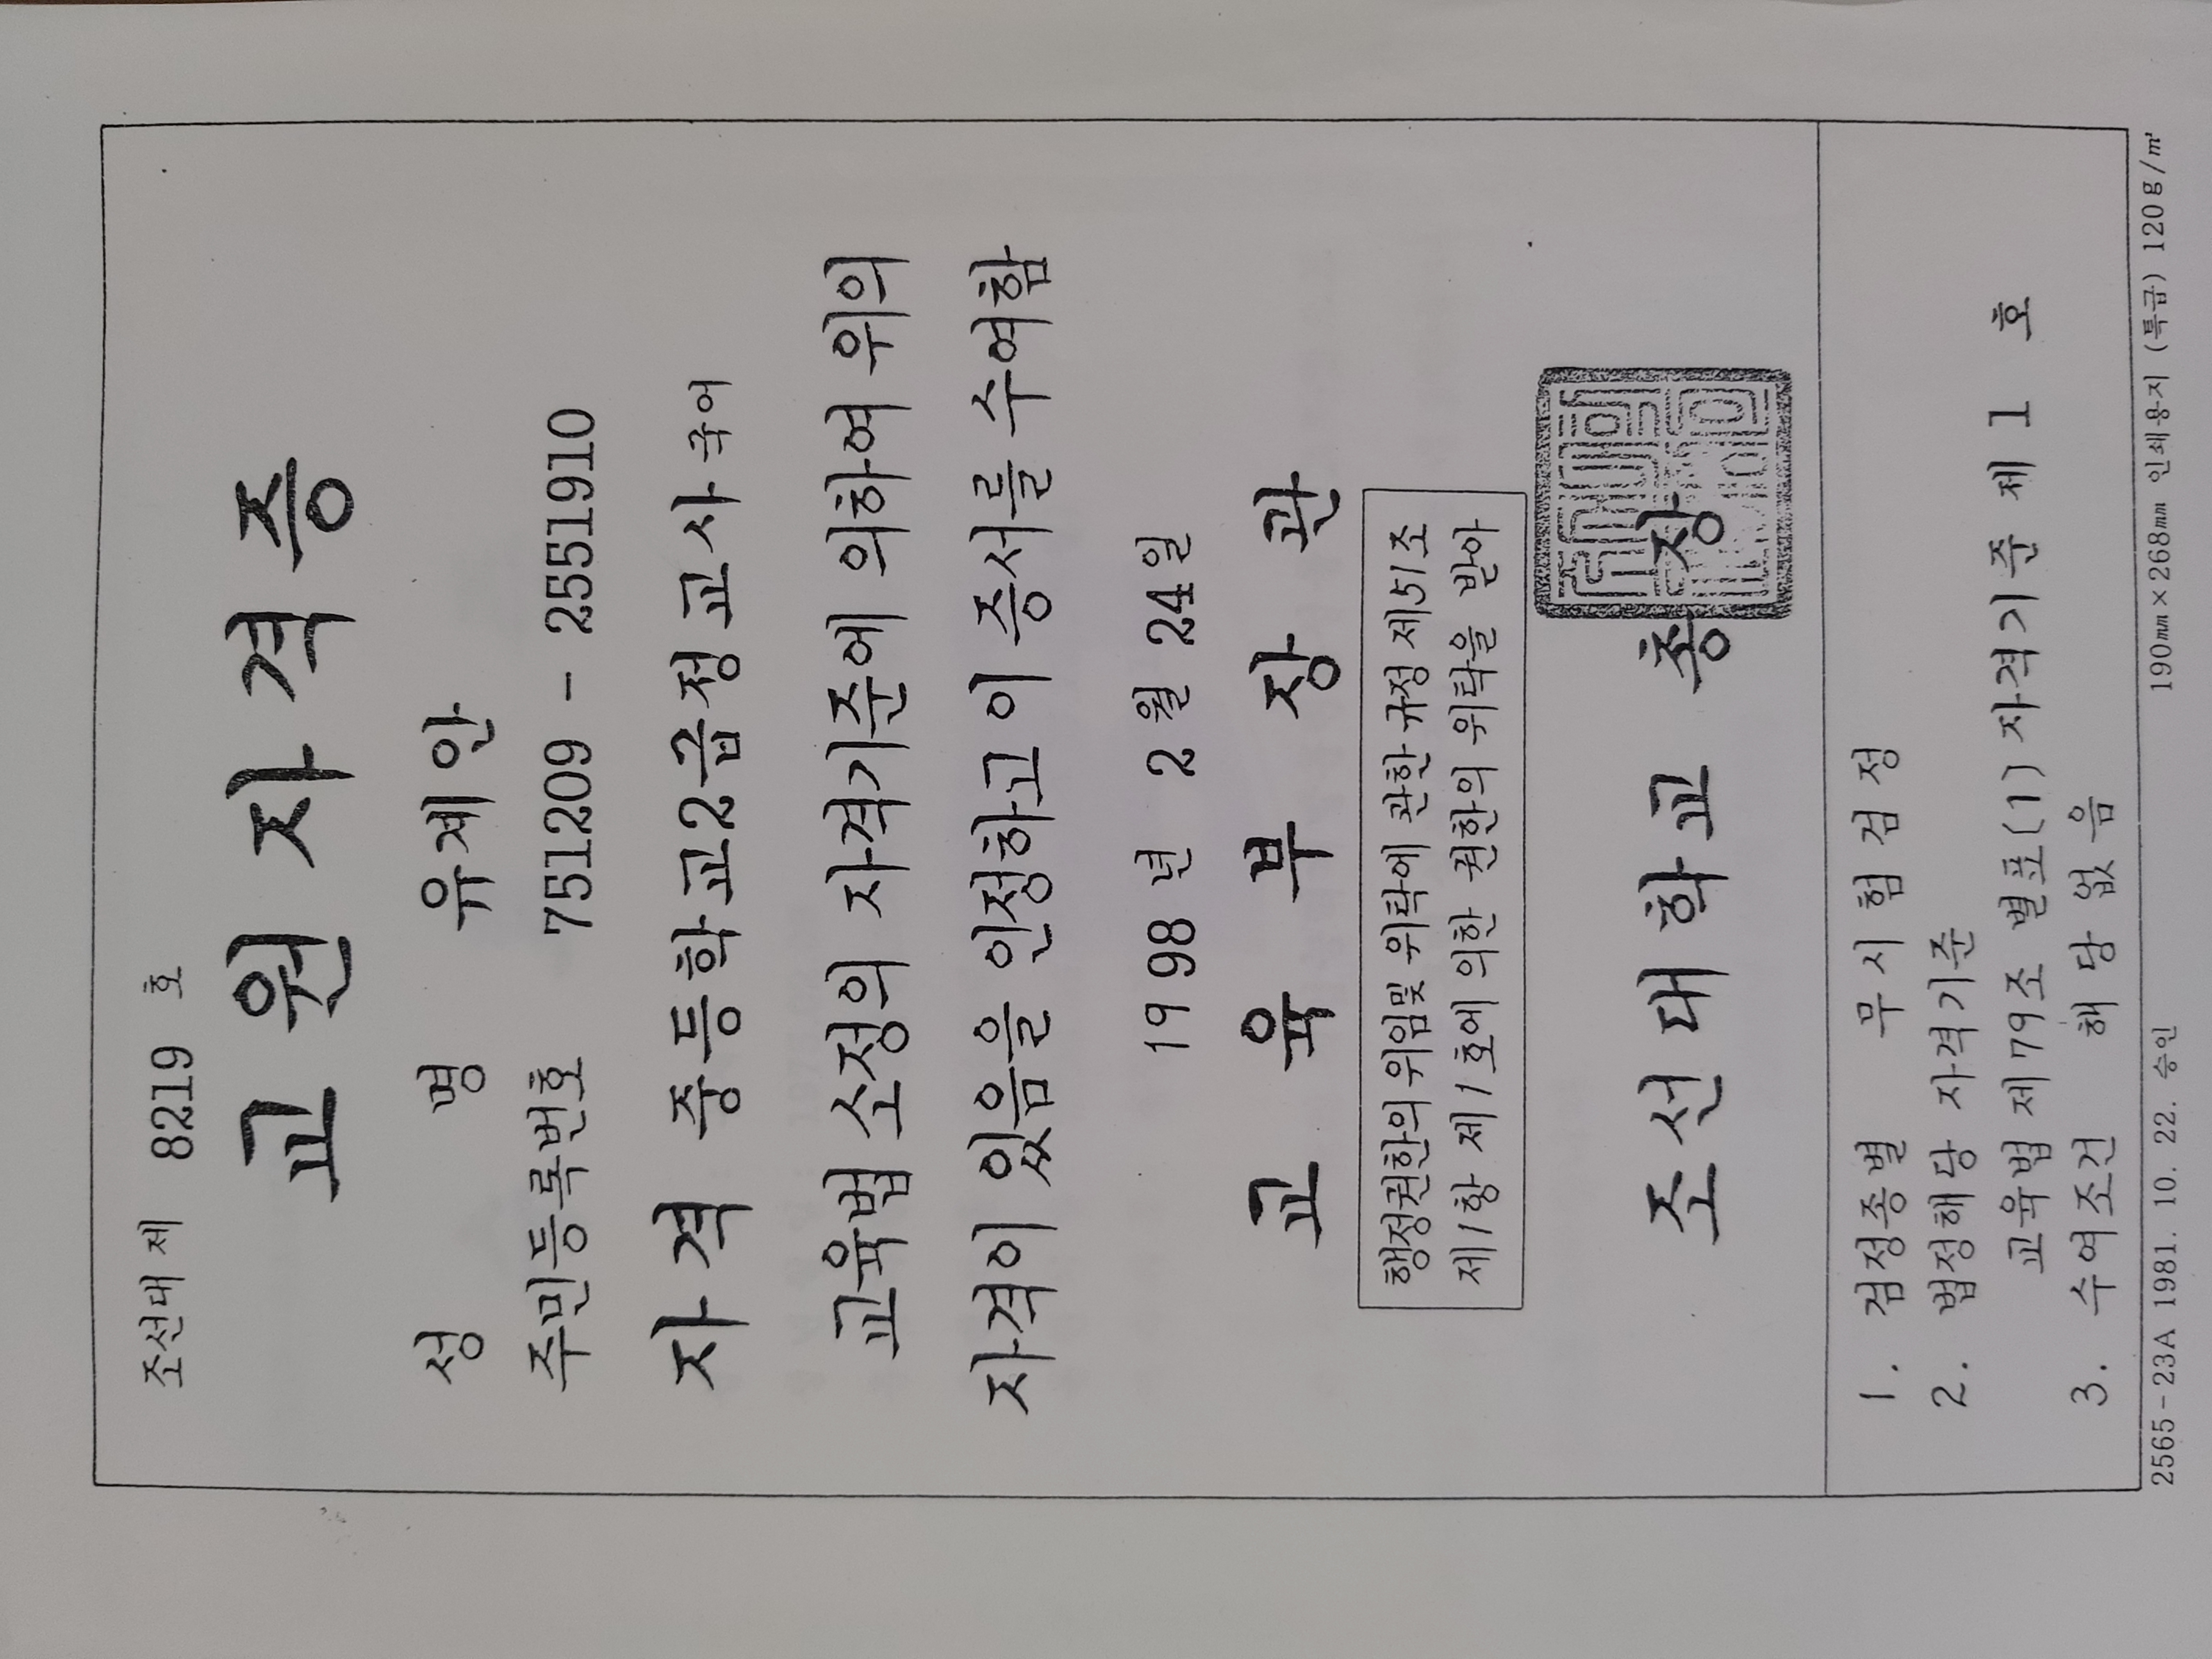 조선대 제 8219 호
교 원 자 격 증
성 명 유제안
주민등록번호 751209 - 2551910
자 격 중등학교2급정교사 국어
교육법 소정의 자격기준에 의하여 위의
자격이 있음을 인정하고 이 증서를 수여함
19 98 년 2 월 24 일
교 육 부 장 관
행정권한의 위임및 위탁에 관한 규정 제51조
제1항 제1호에 의한 권한의 위탁을 받아
조 선 대 학 교 총 장
1. 검정종별 무 시 험 검 정
2. 법정해당 자격기준
교육법 제79조 별표(1) 자격기준 제 1 호
3. 수여조건 해 당 없 음
2565-23A 1981. 10. 22. 승인 190㎜×268㎜ 인쇄용지 (특급) 120g/㎡